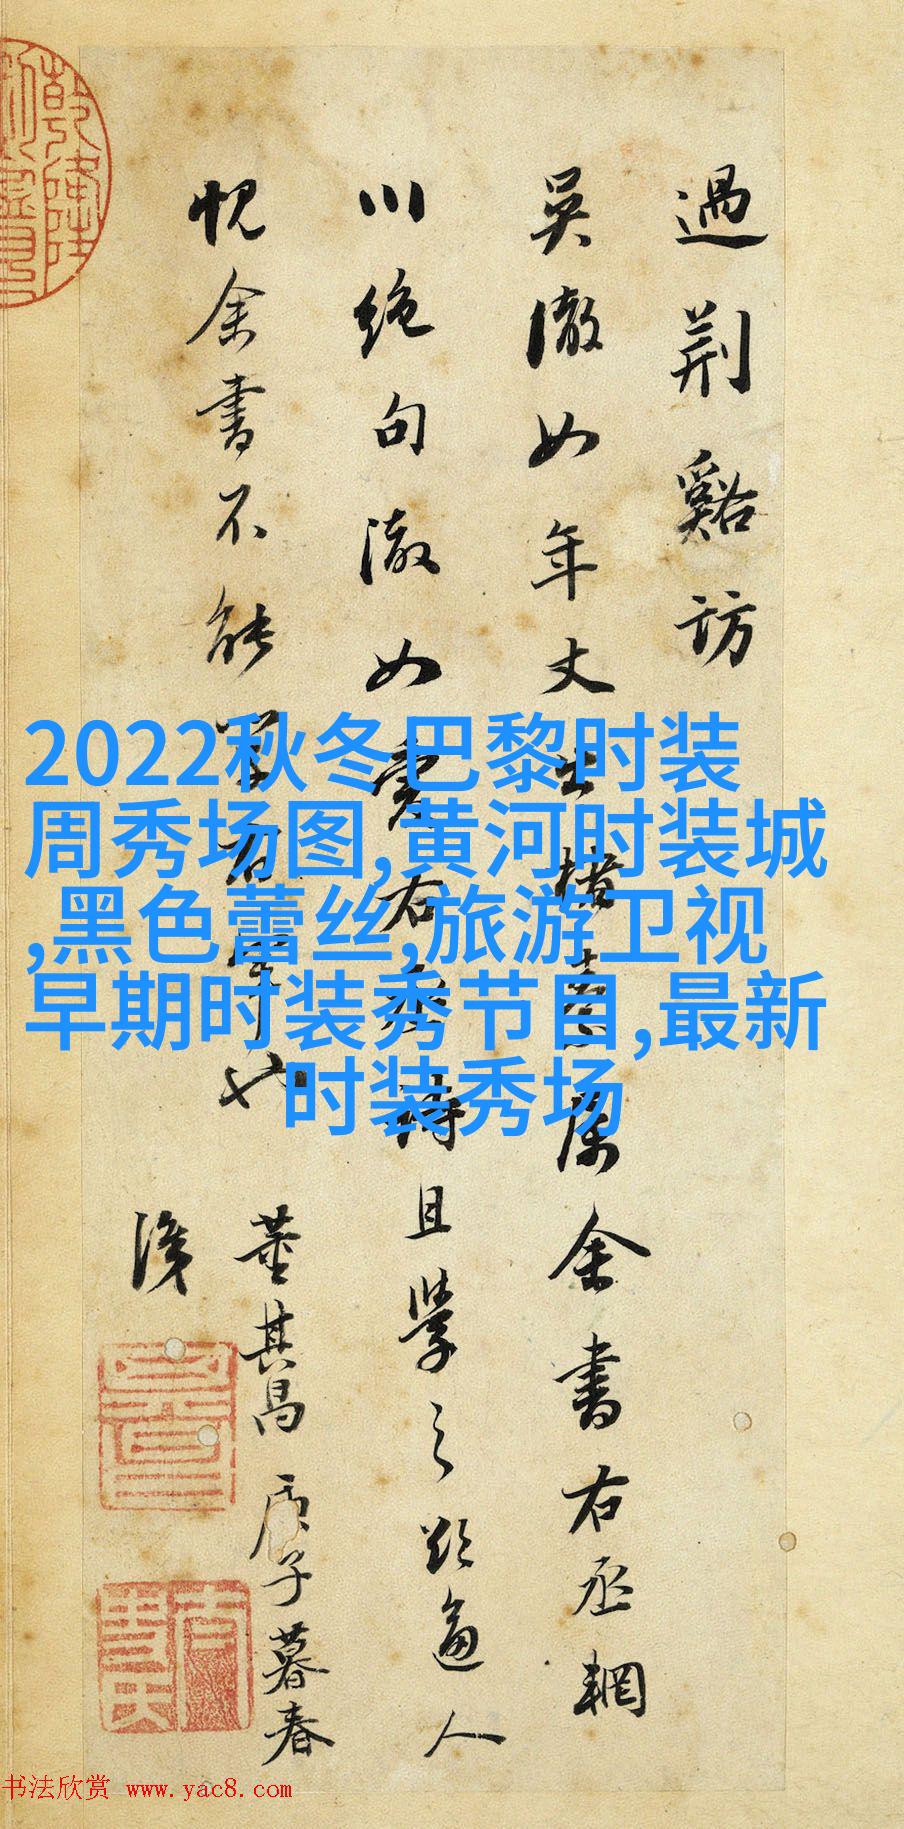 過荆谿訪
吳澈如年丈出楮素屬余書右丞輞
川绝句澈如愛右丞詩且學之欲逼人
愧余書不能學右軍也
董其昌庚子暮春
2022秋冬巴黎时装
周秀场图,黄河时装城
,黑色蕾丝,旅游卫视
早期时装秀节目,最新
时装秀场
书法欣赏 www.yac8.com